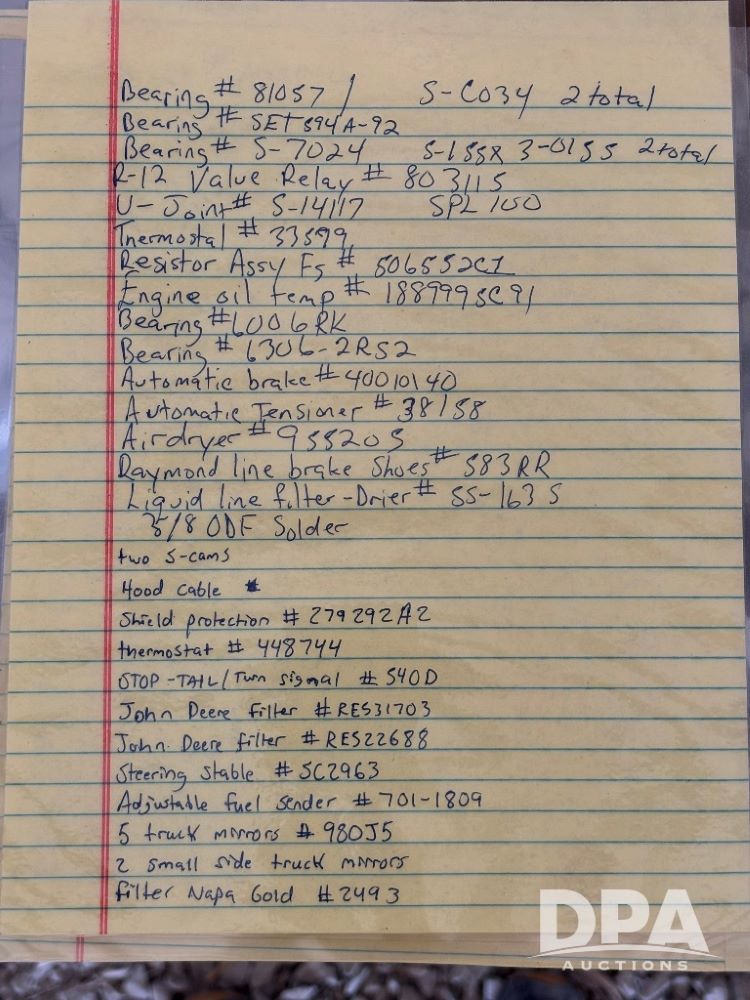 Bearing # 81057 / S-C034 2 total
Bearing # SET594A-92
Bearing # S-7024 S-155X 3-0155 2 total
R-12 Value Relay # 803115
U-Joint # S-14117 SPL 100
Thermostal # 33599
Resistor Assy Fs # 506552C1
Engine oil temp # 1889995C91
Bearing #6006RK
Bearing # 6306-2RS2
Automatic brake # 40010140
Automatic Tensioner # 38158
Airdryer # 955205
Raymond line brake Shoes # 583RR
Liquid line filter-Drier # SS-163 S
5/8 ODF Solder
two S-cams
Hood cable #
Shield protection # 279292A2
thermostat # 448744
STOP-TAIL/Turn signal # 540D
John Deere filter # RE531703
John Deere filter # RE522688
Steering stable # SC2963
Adjustable fuel sender # 701-1809
5 truck mirrors # 980J5
2 small side truck mirrors
filter Napa Gold #2493
DPA
AUCTIONS